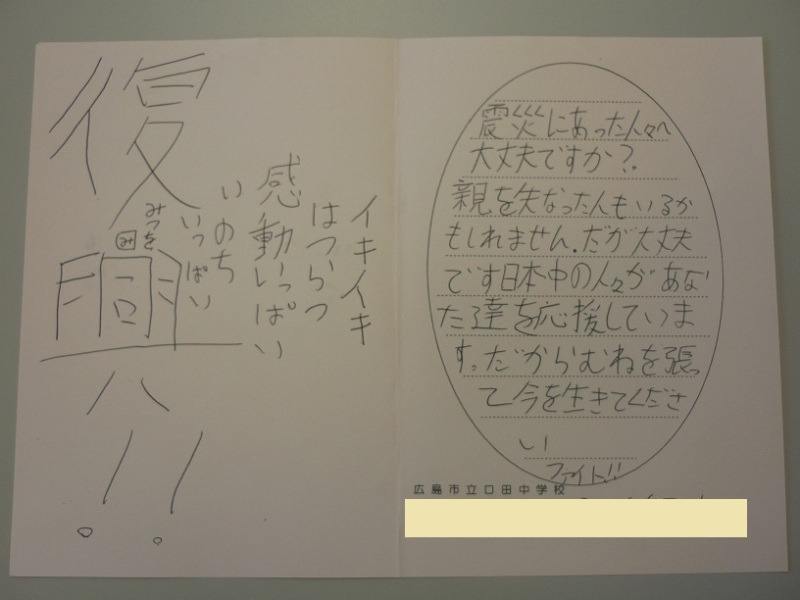 復興!!
イキイキ
はつらつ
感動いっぱい
いのち
いっぱい
みつを
み
震災にあった人々へ
大丈夫ですか?
親を失なった人もいるか
もしれません。だが大丈夫
です日本中の人々があな
た達を応援していま
す。だからむねを張っ
て今を生きてくださ
い
ファイト!!
広島市立口田中学校